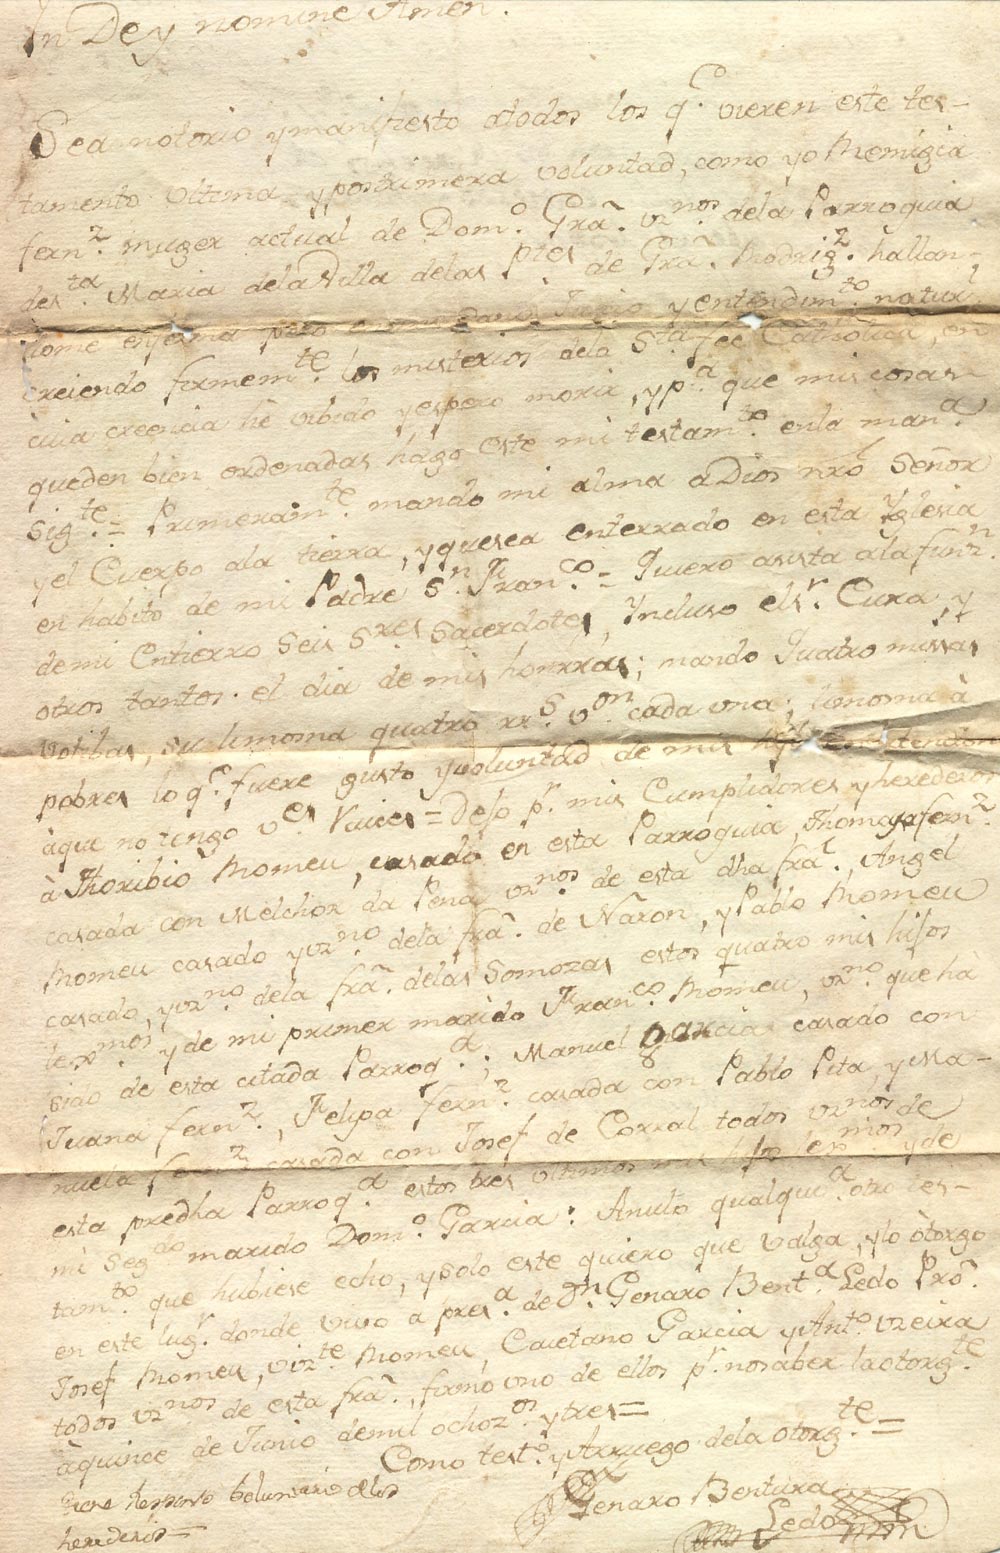 In Dey nomine Amen.
Sea notorio y manifiesto atodos los q.e vieren este tes-
tamento ultima y postrimera voluntad, como yo Remigia
fern.z muger actual de Dom.o Grã. vz.nos dela Parroquia
de s.ta Maria dela Villa delas p.tes de Grã. Rodrig.z hallan-
dome enferma pero en mi sano Juicio y entendim.to natur.l
creiendo firmem.te los misterios dela S.ta fee Catholica, en
cuia creencia hè vibido y espero morir, y p.a que mis cosas
queden bien ordenadas hágo este mi testam.to enla man.a
sig.te = Primeram.te mando mi alma a Dios nrõ Señor
y el Cuerpo ala tierra, y que sea enterrado en esta Yglesia
en habito de mi Padre S.n Fran.co = Quiero asista ala funz.n
de mi Entierro Seis S.res Sacerdotes, Yncluso el s.r Cura, y
otros tantos el dia de mis honrras; mando Quatro missas
votibas, su limosna quatro rr.s v.on cada una; limosna à
pobres lo q.e fuere gusto y voluntad de mis
àque no tengo v.es Vuices = Dejo p.r mis Cumplidores y herederos
à Thoribio Romeu, casado en esta Parroquia, Thomasa fern.z
casada con Melchor da Pena vz.nos de esta dha frã., Angel
Romeu casado y vz.no dela frã. de Narón, y Pablo Romeu
casado, y vz.no dela frã. delas Somozas estos quatro mis hijos
lexmos y de mi primer marido Fran.co Romeu, vz.no que hà
sido de esta citada Parroq.a; Manuel Garcia casado con
Juana fern.z, Felipa fern.z casada con Pablo Pita, y Ma-
nuela fern.z casada con Josef de Corral todos vz.nos de
esta predha Parroq.a estos tres ultimos mis hijos lexmos y de
mi seg.do marido Dom.o Garcia: Anulo qualqui.a otro tes-
tam.to que hubiese echo, y solo este quiero que valga, y lo òtorgo
en este lug.r donde vivo a pres.a de D.n Genaro Bent.a Ledo Prõ.
Josef Romeu, Viz.te Romeu, Caietano Garcia y Ant.o Vreira
todos vz.nos de esta frã., firmo uno de ellos p.r no saber la otorg.te
àquince de Junio demil ochoz.os y tres=
Como test.o y Arruego dela otorg.te =
Genaro Bentura
Ledo
boluntario delos
herederos=